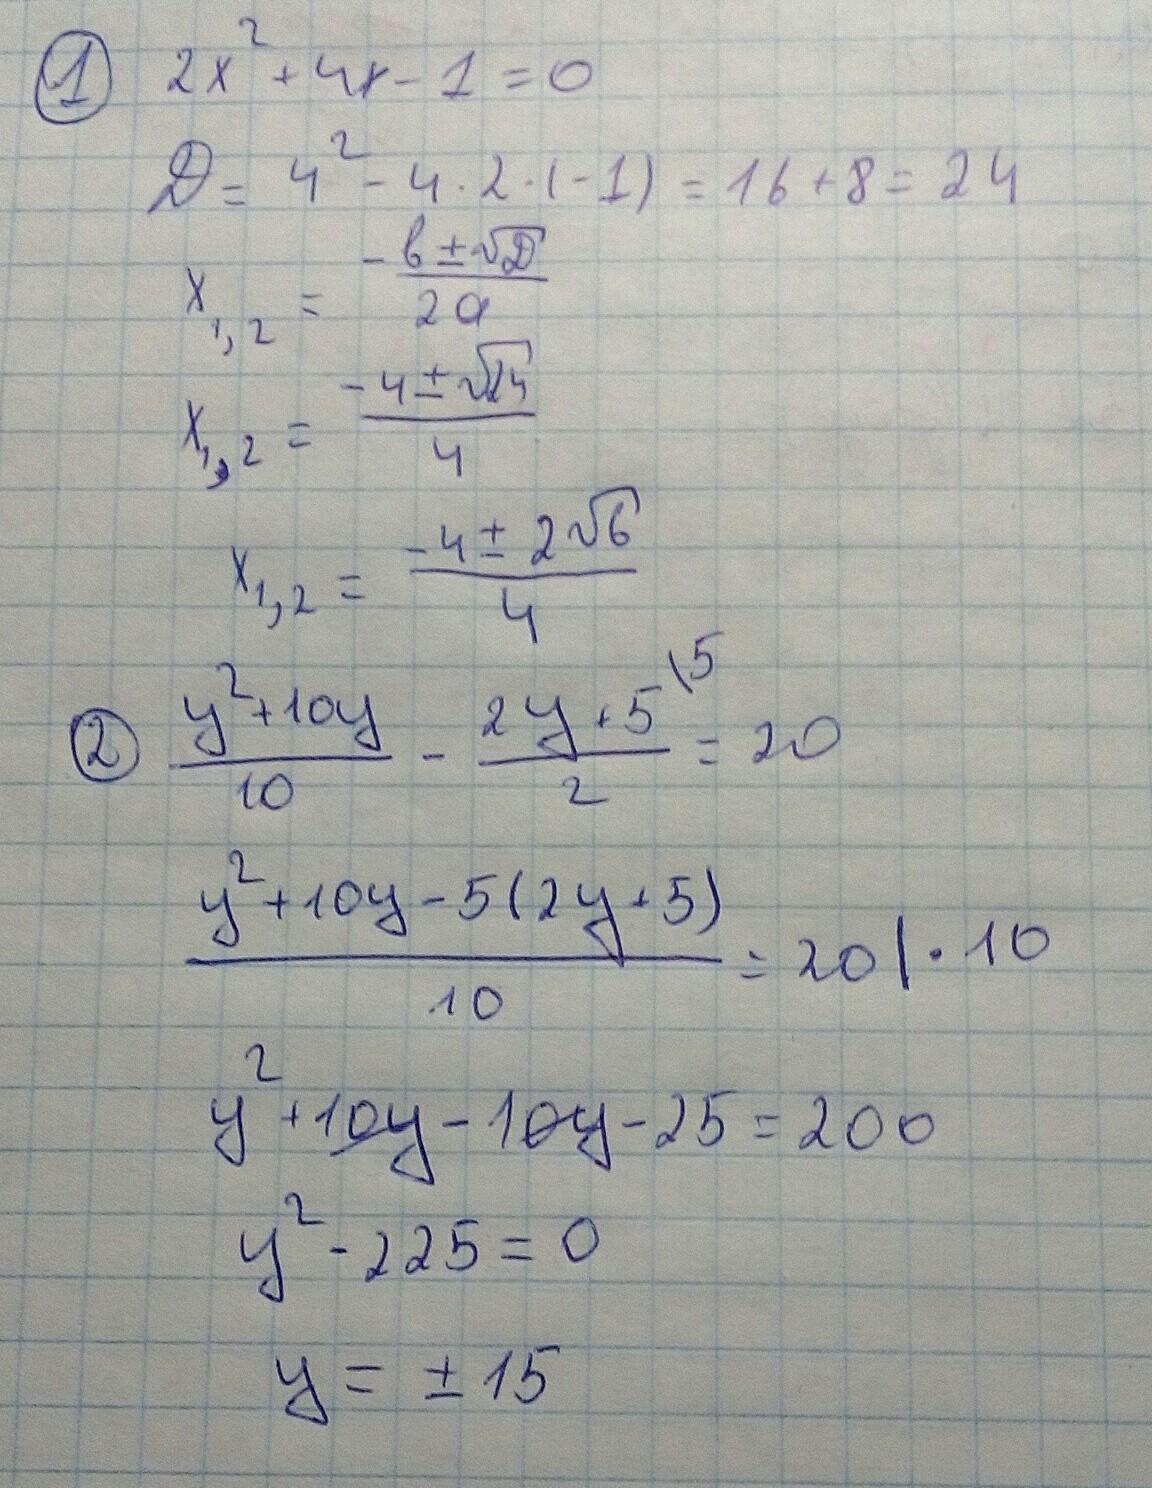 ① 2x² + 4x - 1 = 0
D = 4² - 4 · 2 · (-1) = 16 + 8 = 24
x₁,₂ = (-b ± √D) / 2a
x₁,₂ = (-4 ± √24) / 4
x₁,₂ = (-4 ± 2√6) / 4
② (y² + 10y) / 10 - (2y + 5) \5 / 2 = 20
(y² + 10y - 5(2y + 5)) / 10 = 20 | · 10
y² + 10y - 10y - 25 = 200
y² - 225 = 0
y = ± 15